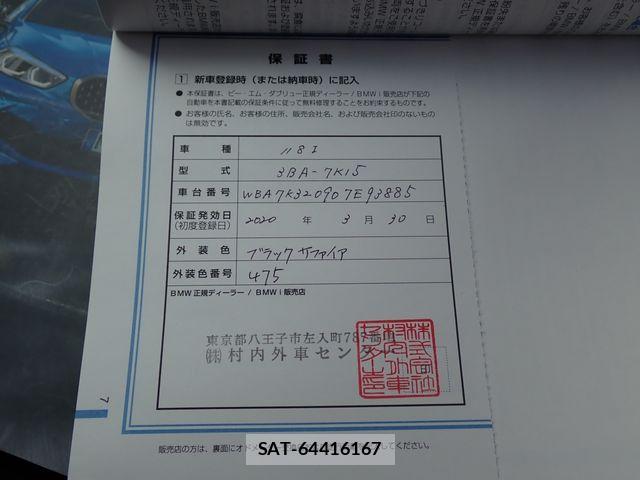 保証書
1 新車登録時（または納車時）に記入
● 本保証書は、ビー・エム・ダブリュー正規ディーラー / BMW i 販売店が下記の
自動車を本書記載の保証条件に従って無料修理することをお約束するものです。
● お客様の氏名、お客様の住所、販売会社名、および販売会社印のないもの
は無効です。
車種 118I
型式 3BA-7K15
車台番号 WBA7K320907E93885
保証発効日 2020 年 3 月 30 日
(初度登録日)
外装色 ブラックサファイア
外装色番号 475
BMW 正規ディーラー / BMW i 販売店
東京都八王子市左入町787番
㈱村内外車セン
株式会社
村内外車
7
販売店の方は、裏面にオドメ
してください。
SAT-64416167